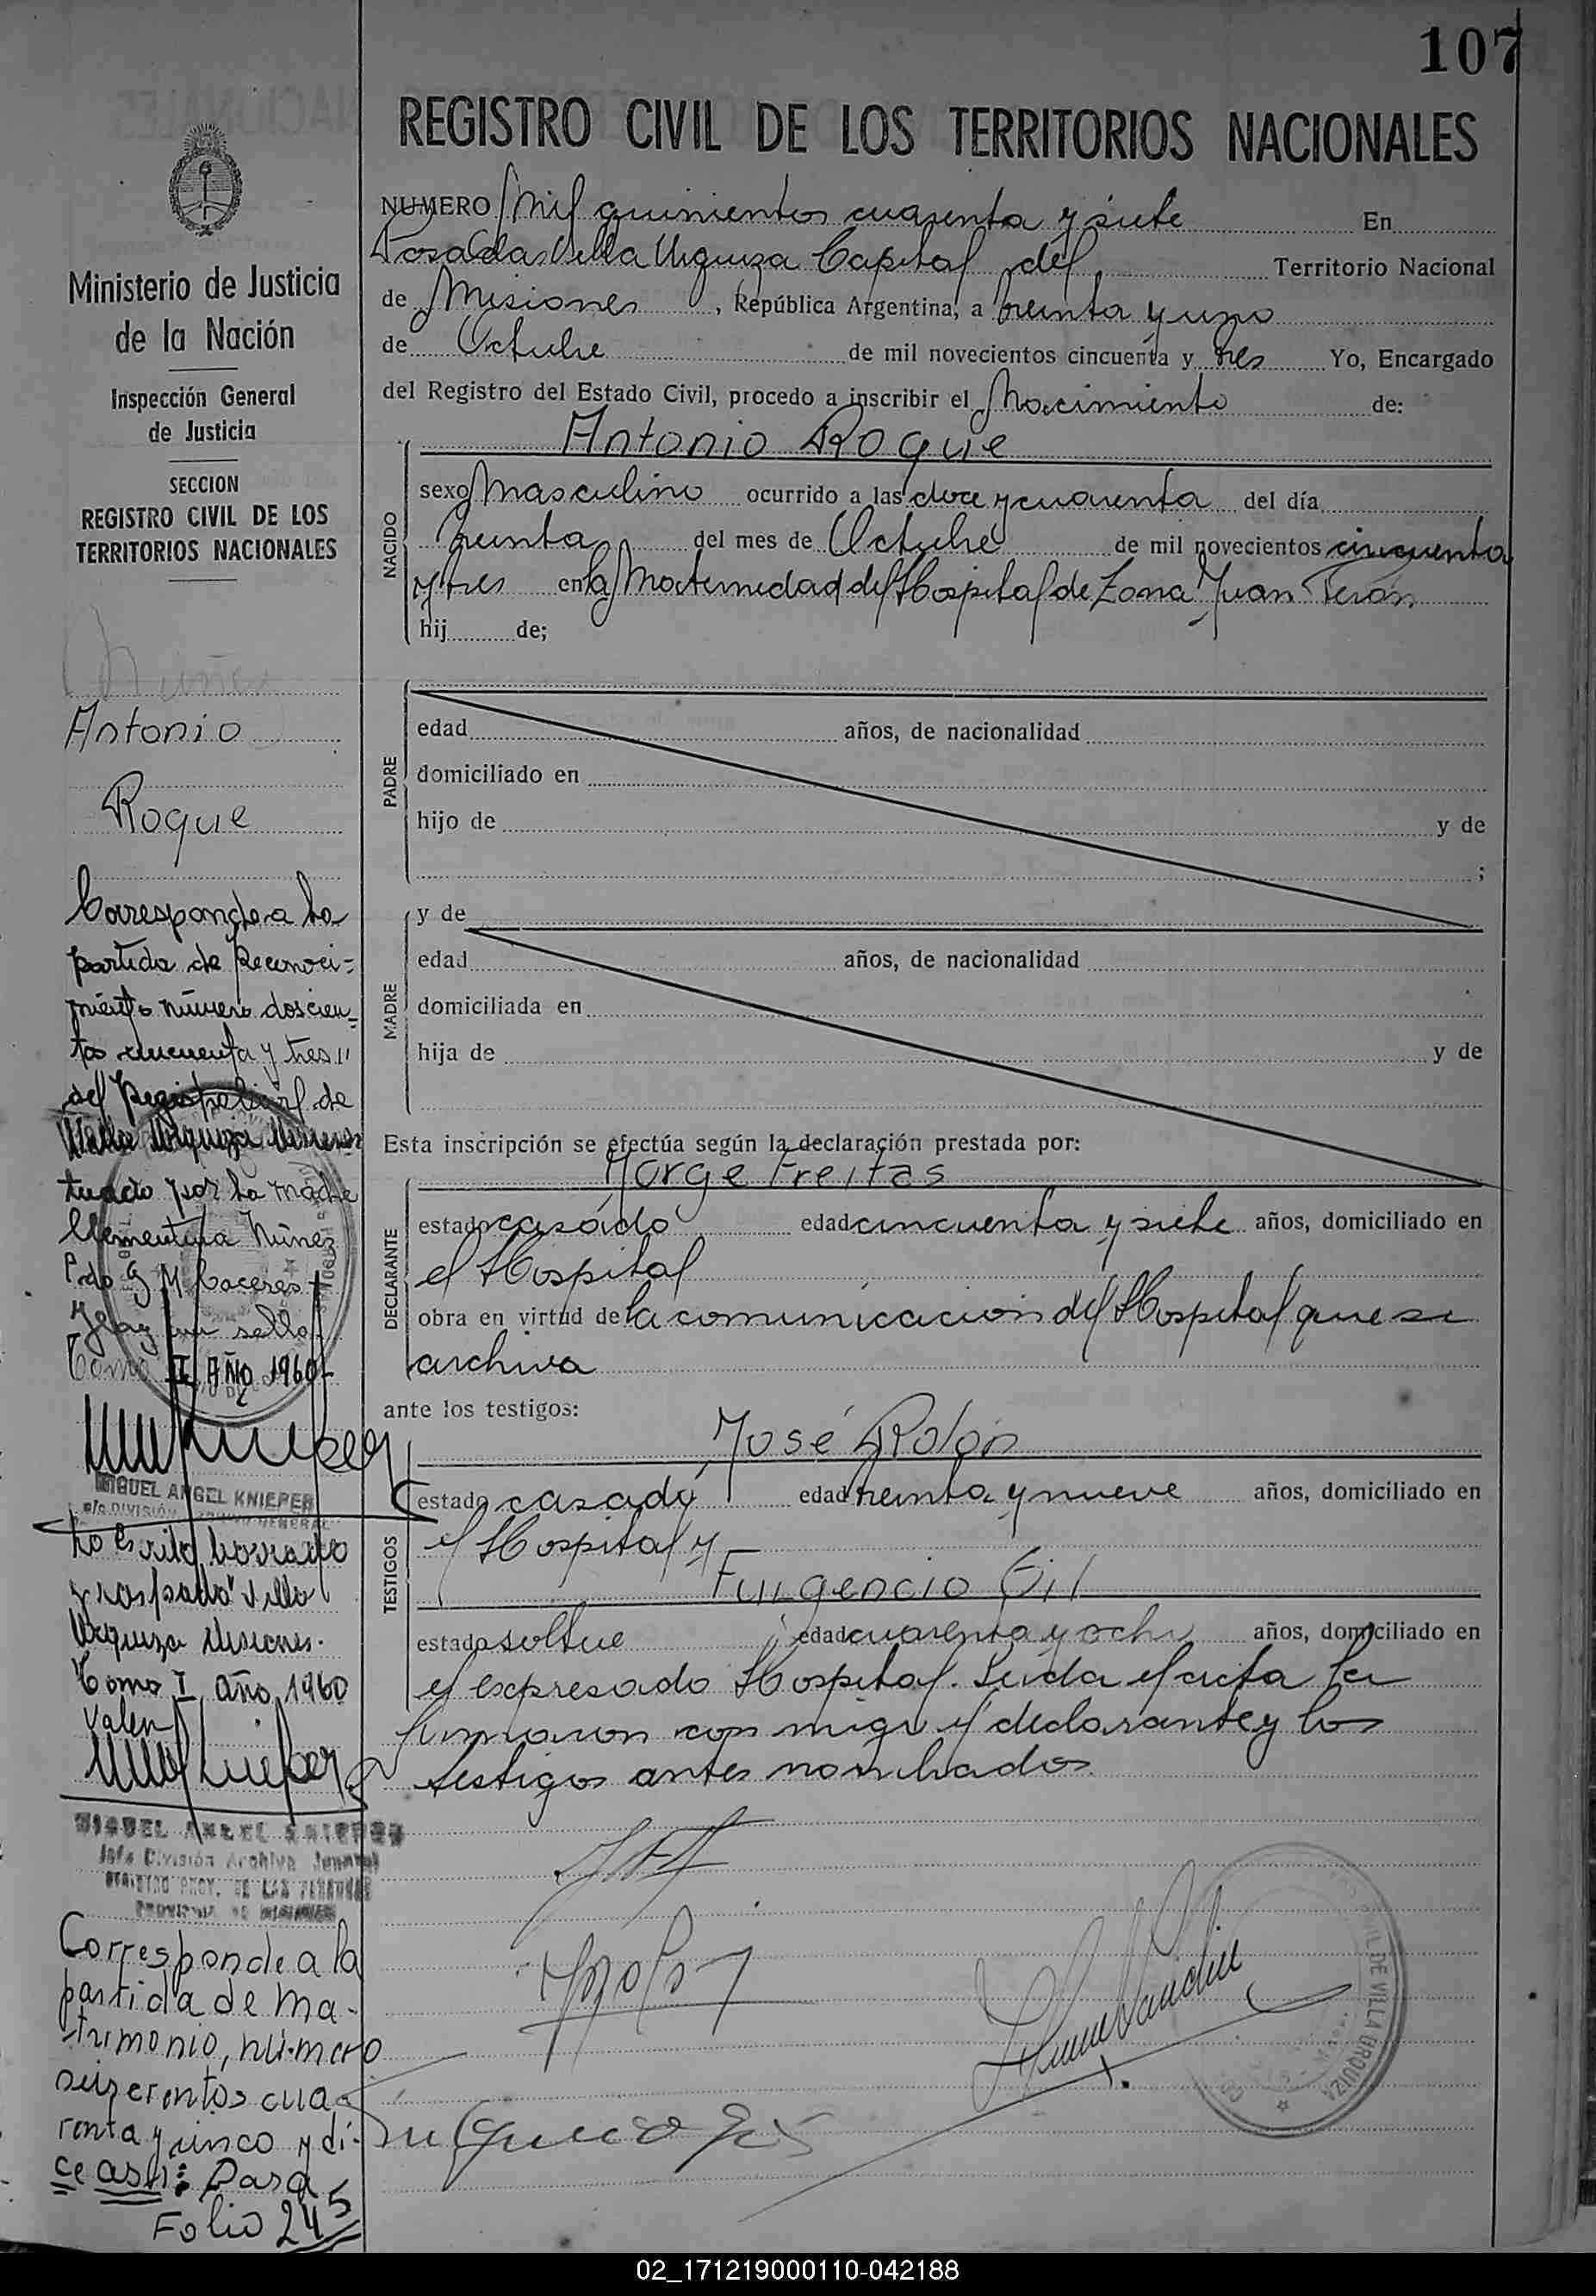 107
REGISTRO CIVIL DE LOS TERRITORIOS NACIONALES
NUMERO Mil quinientos cuarenta y siete En
Posadas Villa Urquiza Capital del Territorio Nacional
de Misiones, República Argentina, a treinta y uno
de Octubre de mil novecientos cincuenta y tres Yo, Encargado
del Registro del Estado Civil, procedo a inscribir el Nacimiento de:
NACIDO
Antonio Roque
sexo Masculino ocurrido a las doce y cuarenta del día
treinta del mes de Octubre de mil novecientos cincuenta
y tres en la Maternidad del Hospital de Zona Juan Perón
hij de;
PADRE
edad años, de nacionalidad
domiciliado en
hijo de y de
;
MADRE
y de
edad años, de nacionalidad
domiciliada en
hija de y de
Esta inscripción se efectúa según la declaración prestada por:
DECLARANTE
Jorge Freitas
estado casado edad cincuenta y siete años, domiciliado en
el Hospital
obra en virtud de la comunicación del Hospital que se
archiva
ante los testigos:
TESTIGOS
José Rolón
estado casado edad treinta y nueve años, domiciliado en
el Hospital y
Fulgencio Gil
estado soltero edad cuarenta y ocho años, domiciliado en
el expresado Hospital. Leida el acta la
firmaron con migo el declarante y los
testigos antes nombrados.
Fulgencio Gil
CIVIL DE VILLA URQUIZA
Ministerio de Justicia
de la Nación
Inspección General
de Justicia
SECCION
REGISTRO CIVIL DE LOS
TERRITORIOS NACIONALES
Nuñez
Antonio
Roque
Corresponde a la
partida de Reconoci=
miento número doscien-
tos cincuenta y tres
del Registro Civil de
Villa Urquiza Misiones
tuado por la madre
Clementina Núñez
Fdo G M Caceres
Hay un sello
Tomo I AÑO 1960-
MIGUEL ANGEL KNIEPER
a/c DIVISIÓN ARCHIVO GENERAL
Lo escrito borrado
y raspado "Villa
Urquiza Misiones.
Tomo I año 1960
Valen
MIGUEL ANGEL KNIEPER
Jefe División Archivo General
REGISTRO PROV. DE LAS PERSONAS
PROVINCIA DE MISIONES
Corresponde a la
partida de ma-
trimonio, número
seiscientos cua-
renta y cinco y di-
ce así: Pasa
Folio 245
02_171219000110-042188